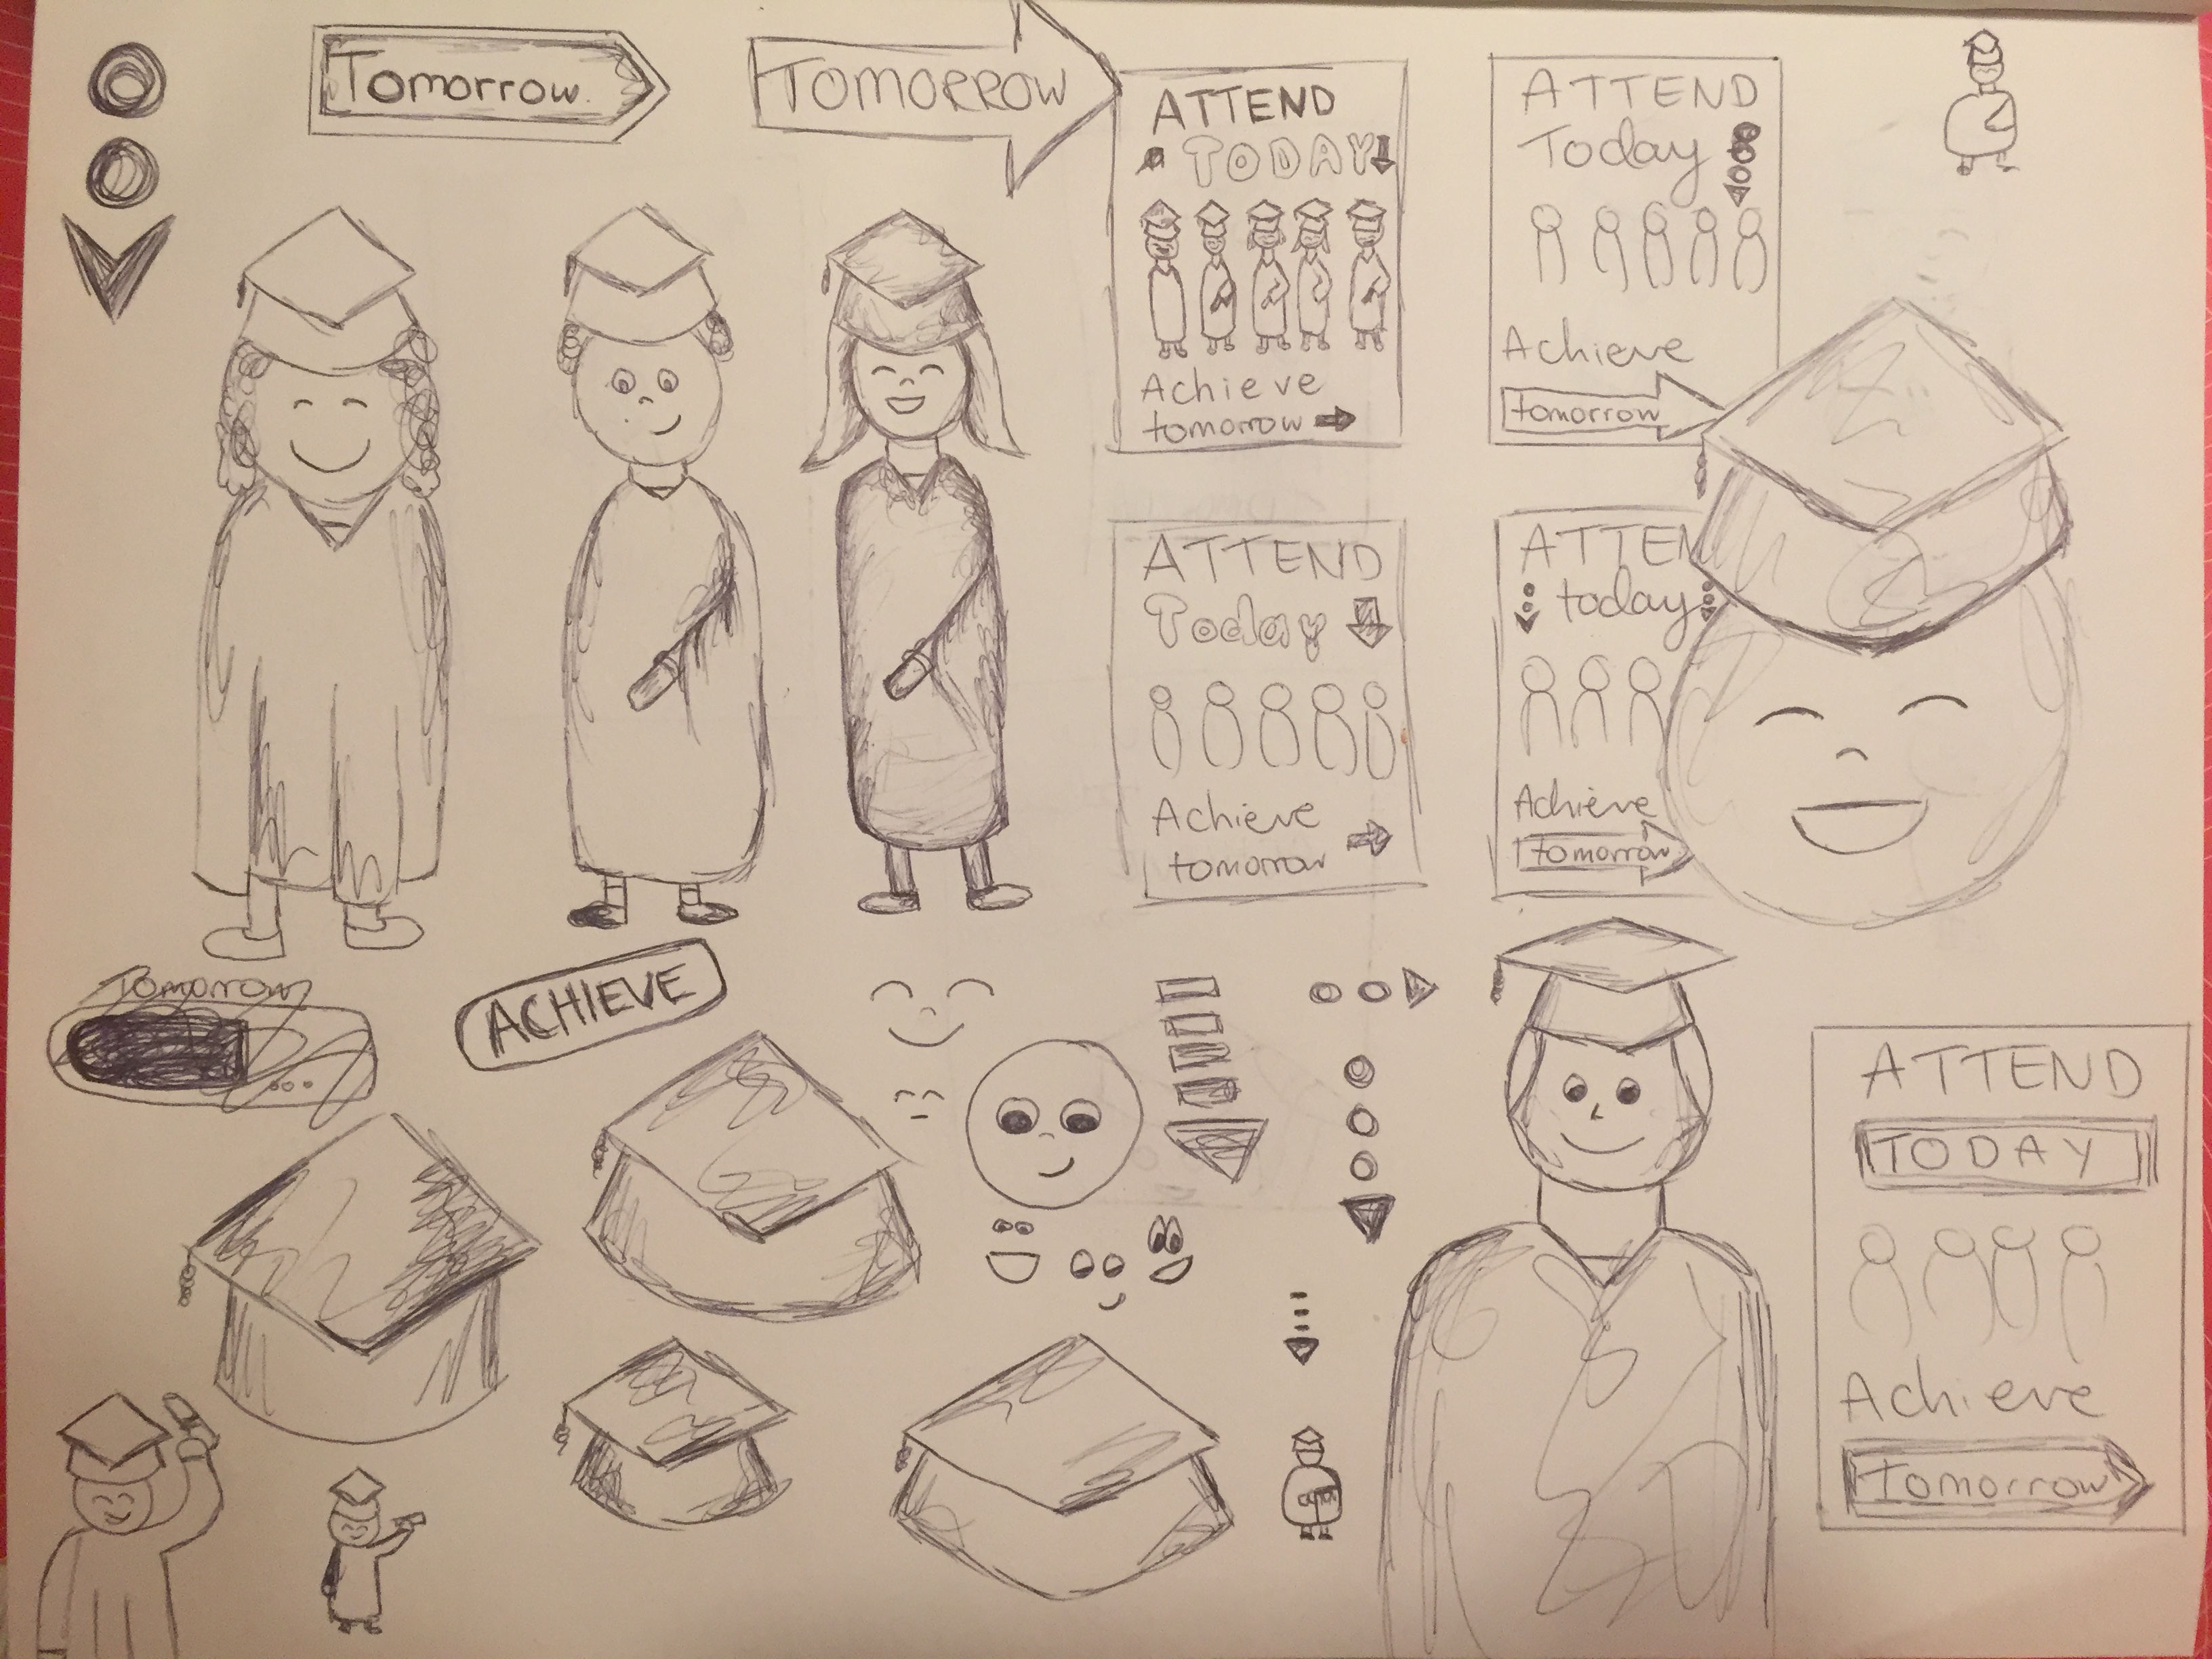 Tomorrow
TOMORROW
ATTEND
TODAY
Achieve
tomorrow
ATTEND
Today
Achieve
tomorrow
Tomorrow
ACHIEVE
ATTEND
Today
Achieve
tomorrow
ATTEND
today
Achieve
tomorrow
ATTEND
TODAY
Achieve
tomorrow